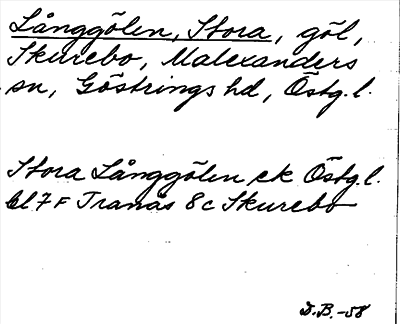 Långgölen, Stora, göl,
Skurebo, Malexanders
sn, Göstrings hd, Östg.l.
Stora Långgölen ek Östg.l.
bl 7F Tranås 8c Skurebo
D.B. -58